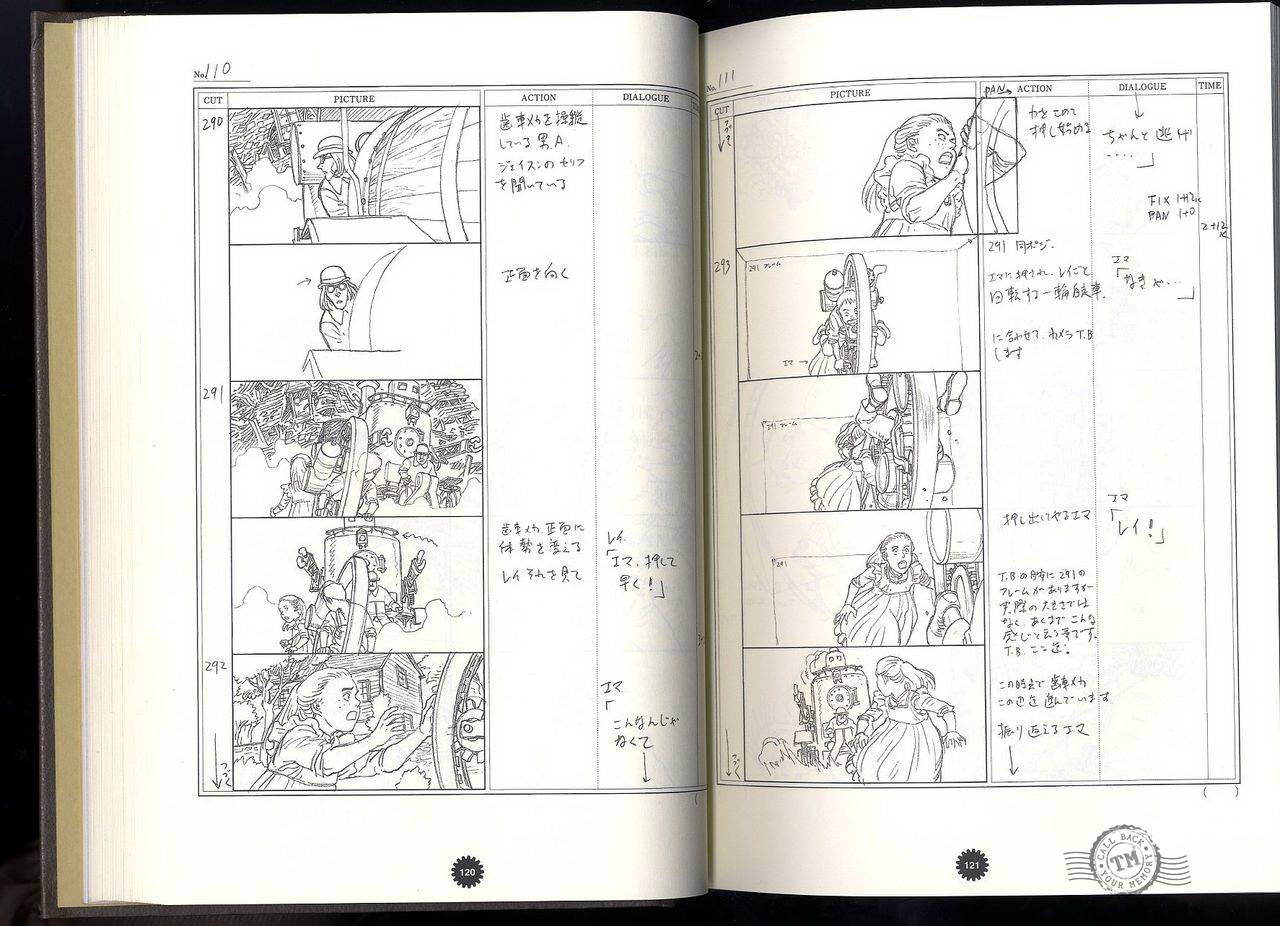 No. 110
CUT
PICTURE
ACTION
DIALOGUE
290
歯車メカを操縦
している男A.
ジェイソンのセリフ
を聞いている
正面を向く
291
歯車メカ、正面に
体勢を変える
レイそれを見て
レイ
「エマ、押して
早く!」
292
エマ
「
こんなんじゃ
なくて
つづく
120
No. 111
CUT
PICTURE
PAN
ACTION
DIALOGUE
TIME
つづき
力をこめて
押し始める
ちゃんと逃げ
‥‥」
FIX 1+12K
PAN 1+0
2+12K
293
291 フレーム
エマ→
291 同ポジ.
エマに押され、レイごと
回転する一輪自走車.
に合わせて、カメラT.B
します
エマ
「なきゃ…
」
291 フレーム
291
押し出してやるエマ
エマ
「レイ!」
T.Bの時に291の
フレームがありますが
実際の大きさでは
なく、あくまでこんな
感じと言う事です。
T.B.ここ迄。
この時点で歯車メカ
この辺迄進んでいます
振り返るエマ
つづく
( )
121
CALL BACK
TM
YOUR MEMORY